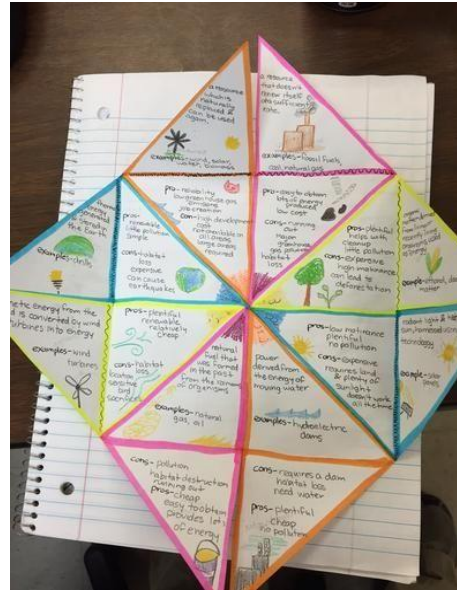 a resource
which is
naturally
replaced &
can be used
again.
examples- wind, solar,
water, biomass
a resource
that doesn't
renew itself
at a sufficient
rate.
examples- fossil fuels,
coal, natural gas
pro- reliability
low green house gas
emissions
job creation
con- high development
cost
not available in
all areas
large areas
required
pro- easy to obtain
lots of energy
produced
low cost
cons- running
out
major
greenhouse
gas pollution
habitat
loss
energy
generated
& stored in
the Earth
examples- drills
pros-
renewable
little pollution
simple
cons- habitat
loss
expensive
can cause
earthquakes
pros- plentiful
helps with
cleanup
little pollution
cons- expensive
high maintenance
can lead to
deforestation
matter
kinetic energy from the
wind is converted by wind
turbines into energy
examples- wind
turbines
pros- plentiful
renewable
relatively
cheap
cons- habitat
loss
location
sensitive
and
sacrifices
natural
fuel that
was formed
in the past
from the remains
of organisms
examples- natural
gas, oil
power
derived from
the energy of
moving water
examples- hydroelectric
dams
pros- low maintenance
plentiful
no pollution
cons- expensive
requires land
& plenty of
sunlight
doesn't work
all the time
radiant light & heat
sun, harnessed using
technology
example- solar
panels
cons- pollution
habitat destruction
running out
pros- cheap
easy to obtain
provides lots
of energy
cons- requires a dam
habitat loss
need water
pros- plentiful
cheap
no pollution